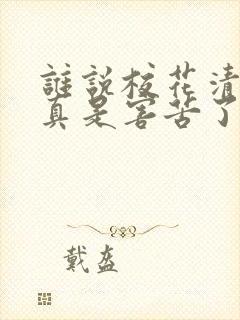 誰說校花清
真是害苦了
戴盔